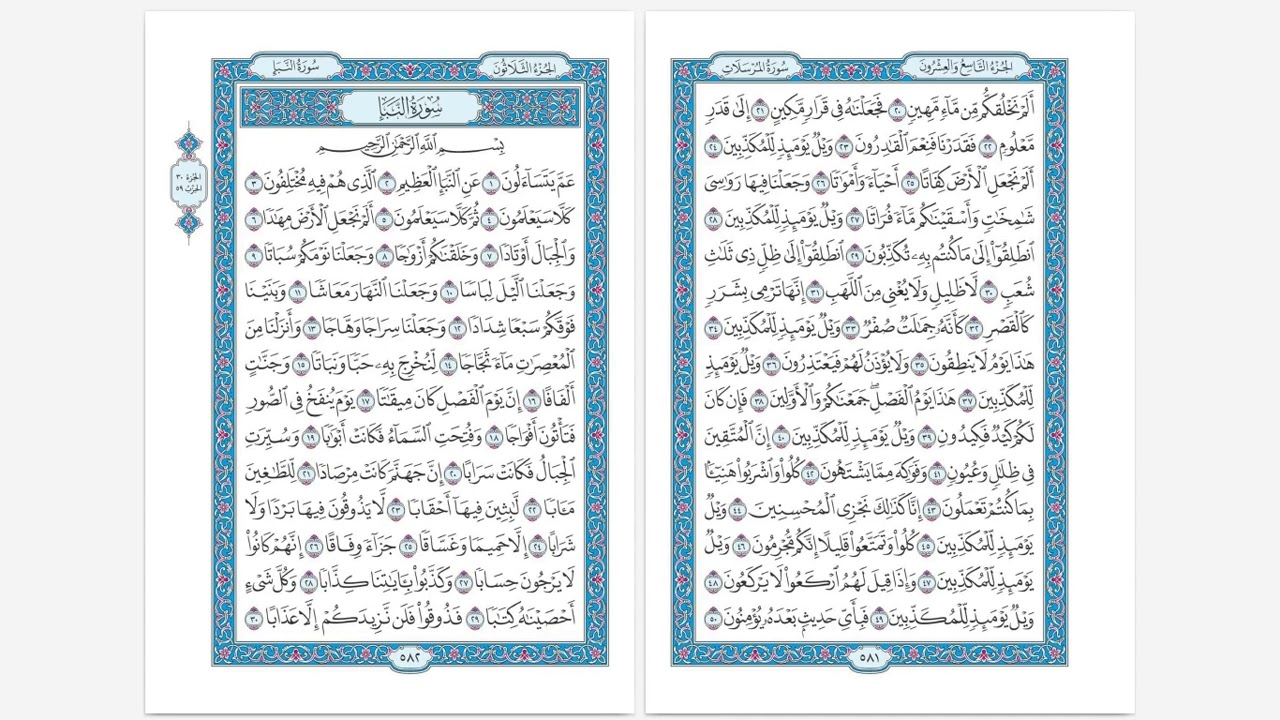 الجزء التاسع والعشرون
سورة المرسلات
أَلَمْ نَخْلُقكُّم مِّن مَّآءٍ مَّهِينٍ ٢٠ فَجَعَلْنَٰهُ فِى قَرَارٍ مَّكِينٍ ٢١ إِلَىٰ قَدَرٍ
مَّعْلُومٍ ٢٢ فَقَدَرْنَا فَنِعْمَ ٱلْقَٰدِرُونَ ٢٣ وَيْلٌ يَوْمَئِذٍ لِّلْمُكَذِّبِينَ ٢٤
أَلَمْ نَجْعَلِ ٱلْأَرْضَ كِفَاتًا ٢٥ أَحْيَآءً وَأَمْوَٰتًا ٢٦ وَجَعَلْنَا فِيهَا رَوَٰسِىَ
شَٰمِخَٰتٍ وَأَسْقَيْنَٰكُم مَّآءً فُرَاتًا ٢٧ وَيْلٌ يَوْمَئِذٍ لِّلْمُكَذِّبِينَ ٢٨
ٱنطَلِقُوٓا۟ إِلَىٰ مَا كُنتُم بِهِۦ تُكَذِّبُونَ ٢٩ ٱنطَلِقُوٓا۟ إِلَىٰ ظِلٍّ ذِى ثَلَٰثِ
شُعَبٍ ٣٠ لَّا ظَلِيلٍ وَلَا يُغْنِى مِنَ ٱللَّهَبِ ٣١ إِنَّهَا تَرْمِى بِشَرَرٍ
كَٱلْقَصْرِ ٣٢ كَأَنَّهُۥ جِمَٰلَتٌ صُفْرٌ ٣٣ وَيْلٌ يَوْمَئِذٍ لِّلْمُكَذِّبِينَ ٣٤
هَٰذَا يَوْمُ لَا يَنطِقُونَ ٣٥ وَلَا يُؤْذَنُ لَهُمْ فَيَعْتَذِرُونَ ٣٦ وَيْلٌ يَوْمَئِذٍ
لِّلْمُكَذِّبِينَ ٣٧ هَٰذَا يَوْمُ ٱلْفَصْلِ ۖ جَمَعْنَٰكُمْ وَٱلْأَوَّلِينَ ٣٨ فَإِن كَانَ
لَكُمْ كَيْدٌ فَكِيدُونِ ٣٩ وَيْلٌ يَوْمَئِذٍ لِّلْمُكَذِّبِينَ ٤٠ إِنَّ ٱلْمُتَّقِينَ
فِى ظِلَٰلٍ وَعُيُونٍ ٤١ وَفَوَٰكِهَ مِمَّا يَشْتَهُونَ ٤٢ كُلُوا۟ وَٱشْرَبُوا۟ هَنِيٓـًٔۢا
بِمَا كُنتُمْ تَعْمَلُونَ ٤٣ إِنَّا كَذَٰلِكَ نَجْزِى ٱلْمُحْسِنِينَ ٤٤ وَيْلٌ
يَوْمَئِذٍ لِّلْمُكَذِّبِينَ ٤٥ كُلُوا۟ وَتَمَتَّعُوا۟ قَلِيلًا إِنَّكُم مُّجْرِمُونَ ٤٦ وَيْلٌ
يَوْمَئِذٍ لِّلْمُكَذِّبِينَ ٤٧ وَإِذَا قِيلَ لَهُمُ ٱرْكَعُوا۟ لَا يَرْكَعُونَ ٤٨
وَيْلٌ يَوْمَئِذٍ لِّلْمُكَذِّبِينَ ٤٩ فَبِأَىِّ حَدِيثٍۭ بَعْدَهُۥ يُؤْمِنُونَ ٥٠
٥٨١
الجزء الثلاثون
سورة النبإ
سُورَةُ النَّبَإِ
بِسْمِ ٱللَّهِ ٱلرَّحْمَٰنِ ٱلرَّحِيمِ
عَمَّ يَتَسَآءَلُونَ ١ عَنِ ٱلنَّبَإِ ٱلْعَظِيمِ ٢ ٱلَّذِى هُمْ فِيهِ مُخْتَلِفُونَ ٣
كَلَّا سَيَعْلَمُونَ ٤ ثُمَّ كَلَّا سَيَعْلَمُونَ ٥ أَلَمْ نَجْعَلِ ٱلْأَرْضَ مِهَٰدًا ٦
وَٱلْجِبَالَ أَوْتَادًا ٧ وَخَلَقْنَٰكُمْ أَزْوَٰجًا ٨ وَجَعَلْنَا نَوْمَكُمْ سُبَاتًا ٩
وَجَعَلْنَا ٱلَّيْلَ لِبَاسًا ١٠ وَجَعَلْنَا ٱلنَّهَارَ مَعَاشًا ١١ وَبَنَيْنَا
فَوْقَكُمْ سَبْعًا شِدَادًا ١٢ وَجَعَلْنَا سِرَاجًا وَهَّاجًا ١٣ وَأَنزَلْنَا مِنَ
ٱلْمُعْصِرَٰتِ مَآءً ثَجَّاجًا ١٤ لِّنُخْرِجَ بِهِۦ حَبًّا وَنَبَاتًا ١٥ وَجَنَّٰتٍ
أَلْفَافًا ١٦ إِنَّ يَوْمَ ٱلْفَصْلِ كَانَ مِيقَٰتًا ١٧ يَوْمَ يُنفَخُ فِى ٱلصُّورِ
فَتَأْتُونَ أَفْوَاجًا ١٨ وَفُتِحَتِ ٱلسَّمَآءُ فَكَانَتْ أَبْوَٰبًا ١٩ وَسُيِّرَتِ
ٱلْجِبَالُ فَكَانَتْ سَرَابًا ٢٠ إِنَّ جَهَنَّمَ كَانَتْ مِرْصَادًا ٢١ لِّلطَّٰغِينَ
مَـَٔابًا ٢٢ لَّٰبِثِينَ فِيهَآ أَحْقَابًا ٢٣ لَّا يَذُوقُونَ فِيهَا بَرْدًا وَلَا
شَرَابًا ٢٤ إِلَّا حَمِيمًا وَغَسَّاقًا ٢٥ جَزَآءً وِفَاقًا ٢٦ إِنَّهُمْ كَانُوا۟
لَا يَرْجُونَ حِسَابًا ٢٧ وَكَذَّبُوا۟ بِـَٔايَٰتِنَا كِذَّابًا ٢٨ وَكُلَّ شَىْءٍ
أَحْصَيْنَٰهُ كِتَٰبًا ٢٩ فَذُوقُوا۟ فَلَن نَّزِيدَكُمْ إِلَّا عَذَابًا ٣٠
الجزء ٣٠
الحزب ٥٩
٥٨٢